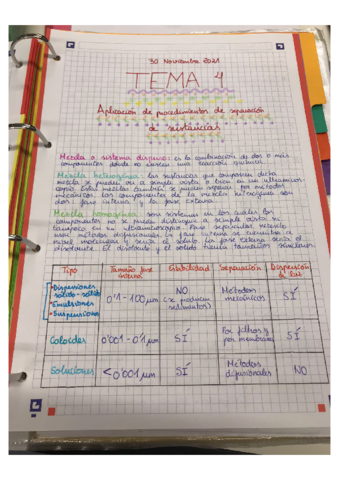 30 Noviembre 2021
TEMA 4
Aplicación de procedimientos de separación
de sustancias
Mezcla o sistema disperso: es la combinación de dos o más
componentes donde no existen una reacción química.
Mezcla heterogénea: las sustancias que componen dicha
mezcla se pueden ver a simple vista o bien en un ultramicros-
copio. Estas mezclas también se pueden separar por métodos
mecánicos. Los componentes de la mezcla heterogénea son
dos: fase interna y la fase externa.
Mezcla homogénea: son sistemas en los cuales los
componentes no se pueden distinguir a simple vista ni
tampoco en un ultramicroscopio. Para separarlos necesito
usar métodos difusionales. La fase interna se encuentra a
nivel molecular y sería el soluto la fase externa sería el
disolvente. El disolvente y el soluto tienen tamaños similares.
Tipo Tamaño fase interna Estabilidad Separación Dispersión de luz
• Dispersiones sólido-sólido • Emulsiones • Suspensiones 0'1 - 100 µm NO (se producen sedimentos) Métodos mecánicos SÍ
Coloides 0'001 - 0'1 µm SÍ Por filtros y por membranas SÍ
Soluciones < 0'001 µm SÍ Métodos difusionales NO